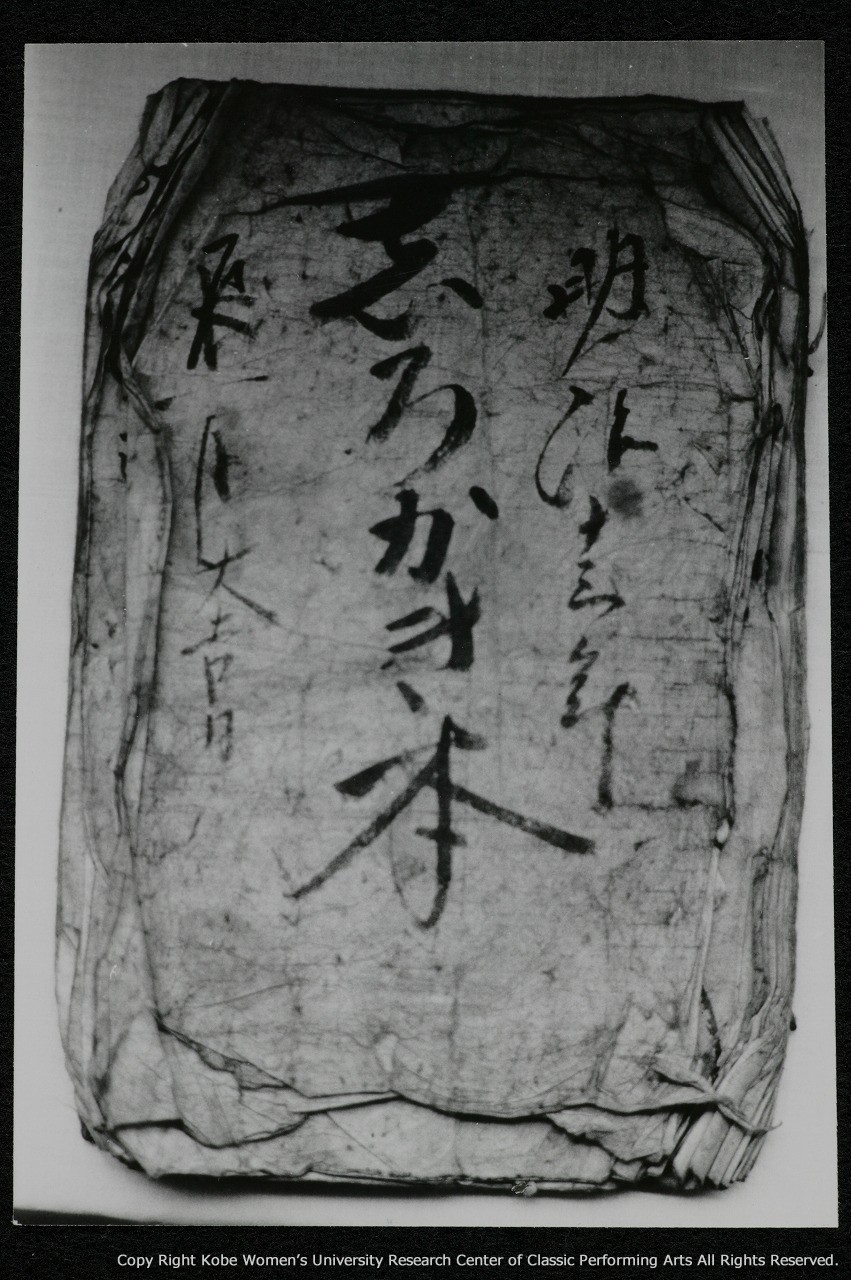 明治十三年
志ろかき本
辰一月大吉日
Copy Right Kobe Women's University Research Center of Classic Performing Arts All Rights Reserved.